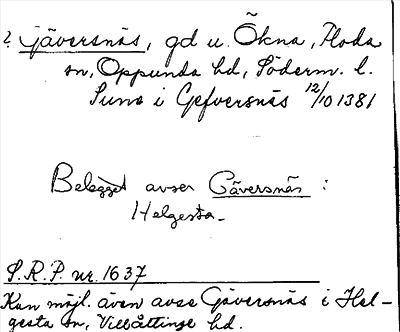 ? Gäversnäs, gd u. Ökna, Floda
sn, Oppunda hd, Söderm. l.
Sune i Gefversnäs 12/10 1381
Belegget avser Gäversnäs i
Helgesta.
S.R.P. nr. 1637
Kan möjl. även avse Gäversnäs i Hel-
gesta sn, Villåttinge hd.